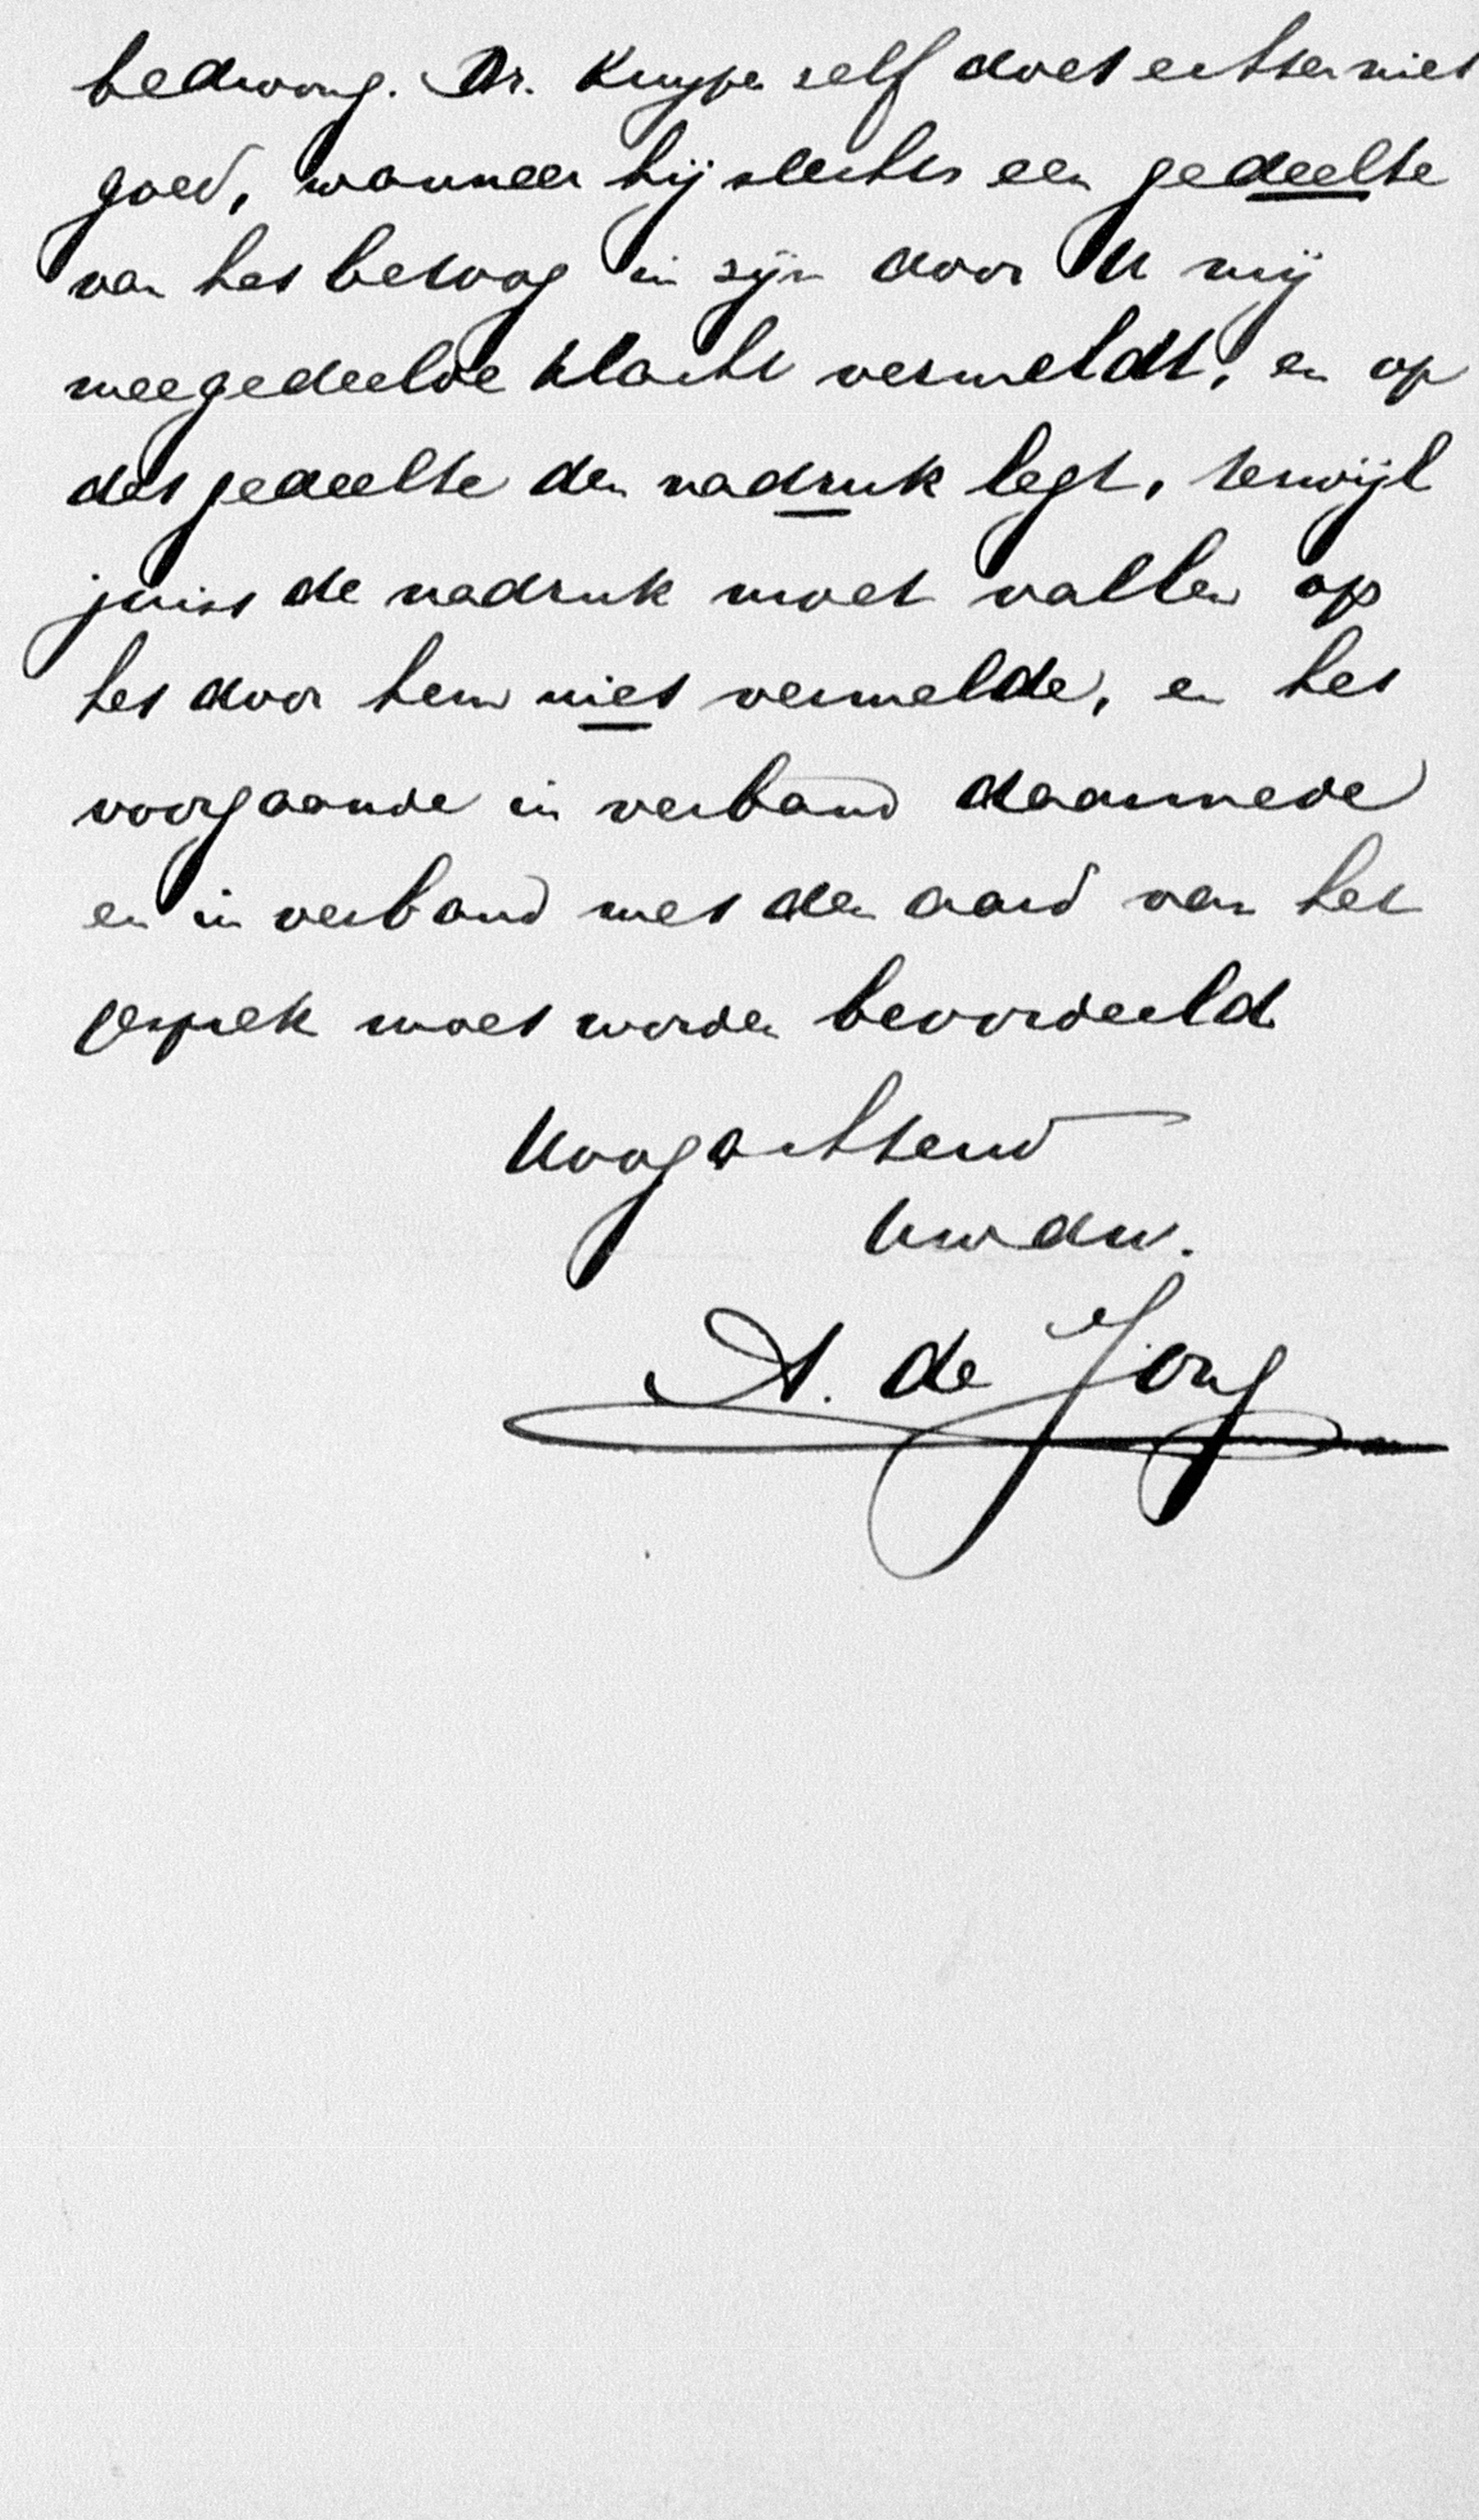 bedwong. Dr. Kuyper zelf doet echter niet
goed, wanneer hij slechts een gedeelte
van het betoog in zijn door U mij
meegedeelde klacht vermeldt, en op
dat gedeelte den nadruk legt, terwijl
juist de nadruk moet vallen op
het door hem niet vermelde, en het
voorgaande in verband daarmede
en in verband met den aard van het
gesprek moet worden beoordeeld
Hoogachtend
Uwdw.
A. de Jong